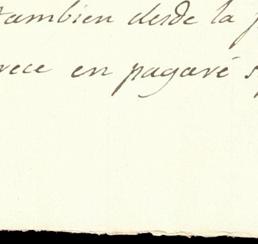 tambien desde la
en pagaré